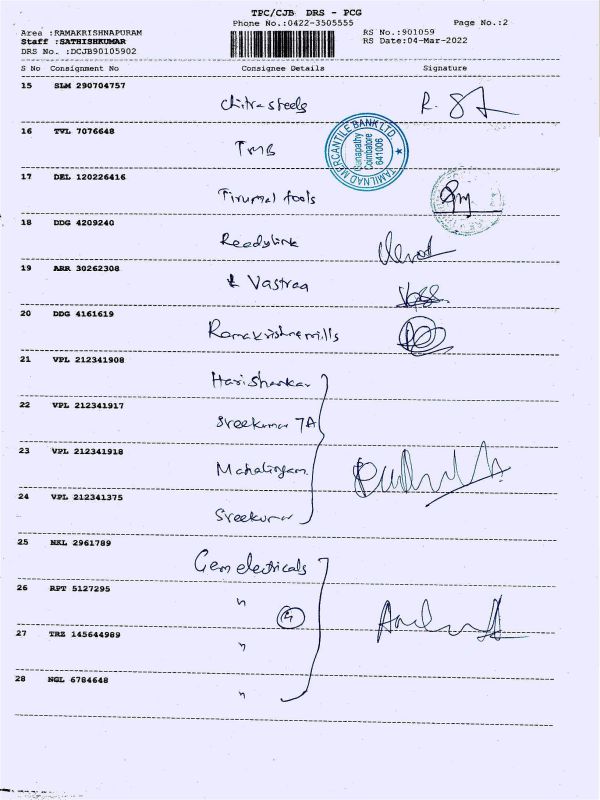 TPC/CJB DRS - PCG
Phone No.:0422-3505555
Page No.:2
Area :RAMAKRISHNAPURAM
RS No.:901059
Staff :SATHISHKUMAR
RS Date:04-Mar-2022
DRS No. :DCJB90105902
S No Consignment No Consignee Details Signature
15 SLM 290704757
Chitra steels
16 TVL 7076648
TMB
TAMILNAD MERCANTILE BANK LTD
Ganapathy
Coimbatore
641006
17 DEL 120226416
Tirumal tools
18 DDG 4209240
Readylink
19 ARR 30262308
Vastraa
20 DDG 4161619
Ramakrishna mills
21 VPL 212341908
Harishankar
22 VPL 212341917
Sreekumar 7A
23 VPL 212341918
Mahalingam
24 VPL 212341375
Sreekumar
25 NKL 2961789
Gem electricals
26 RPT 5127295
"
4
27 TRZ 145644989
"
28 NGL 6784648
"